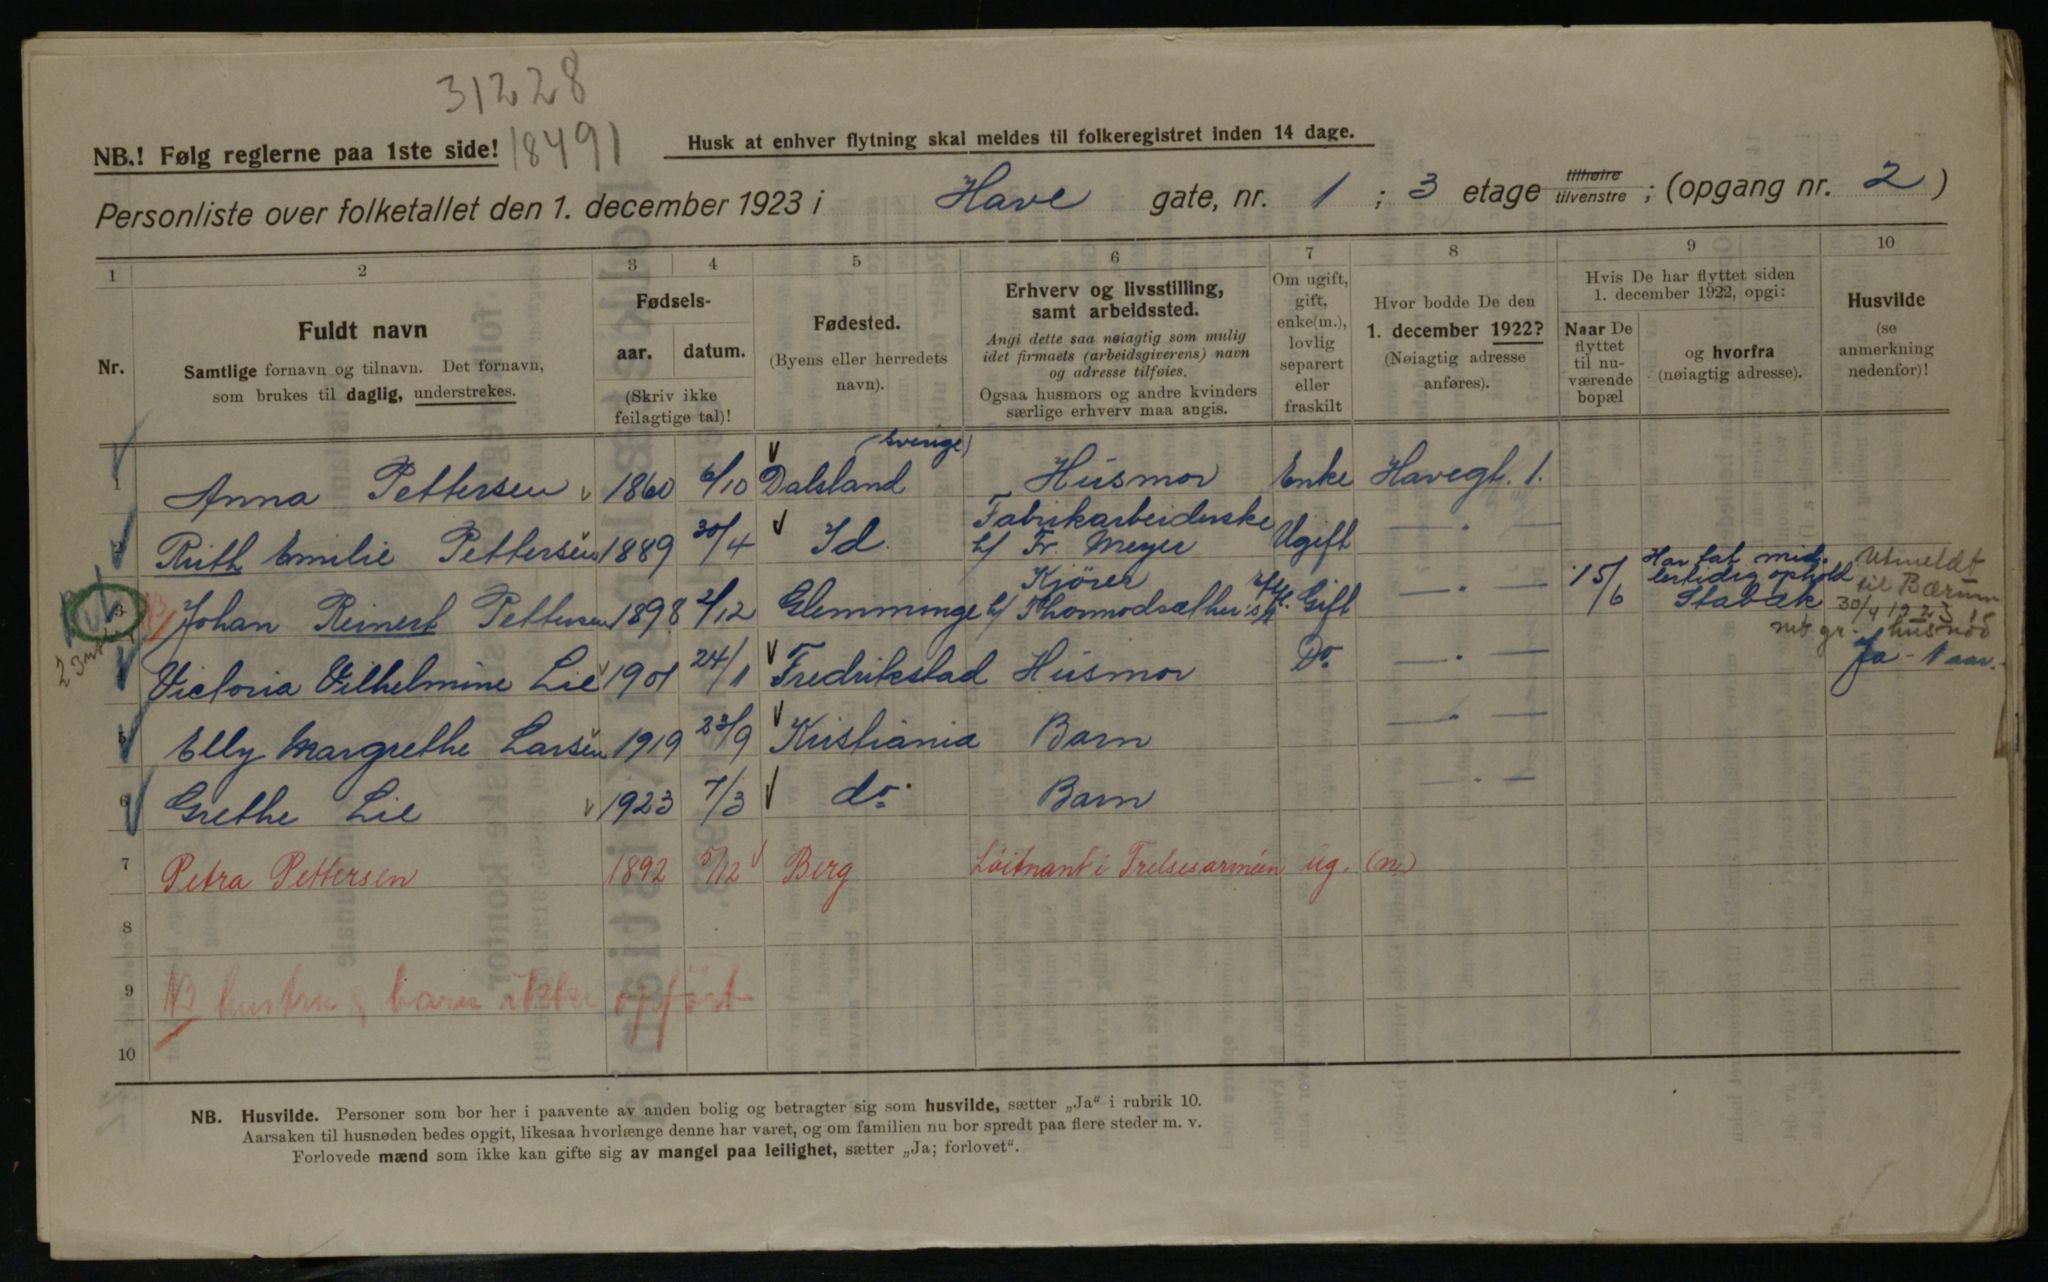 31228
NB.! Følg reglerne paa 1ste side! 18491 Husk at enhver flytning skal meldes til folkeregistret inden 14 dage.
Personliste over folketallet den 1. december 1923 i Have gate, nr. 1 ; 3 etage tilhøire tilvenstre ; (opgang nr. 2 )
1 2 3 4 5 6 7 8 9 10
Nr.
Fuldt navn
Samtlige fornavn og tilnavn. Det fornavn,
som brukes til daglig, understrekes.
Fødsels-
aar. datum.
(Skriv ikke
feilagtige tal)!
Fødested.
(Byens eller herredets
navn).
Erhverv og livsstilling,
samt arbeidssted.
Angi dette saa nøiagtig som mulig
idet firmaets (arbeidsgiverens) navn
og adresse tilføies.
Ogsaa husmors og andre kvinders
særlige erhverv maa angis.
Om ugift,
gift,
enke(m.),
lovlig
separert
eller
fraskilt
Hvor bodde De den
1. december 1922?
(Nøiagtig adresse
anføres).
Hvis De har flyttet siden
1. december 1922, opgi:
Naar De
flyttet
til nu-
værende
bopæl
og hvorfra
(nøiagtig adresse).
Husvilde
(se
anmerkning
nedenfor)!
1 Anna Pettersen 1860 6/10 Dalsland (Sverige) Husmor Enke Havegt. 1.
2 Ruth Emilie Pettersen 1889 30/4 Id. Fabrikarbeiderske h/ Fr. Meyer Ugift — " —
3 Johan Reinert Pettersen 1898 2/12 Glemminge Kjører h/ Thormodsæther Gift — " — 15/6 Har tat mid-
lertidig ophold
Stabæk
Utmeldt
til Bærum
30/9 1923
husnød
4 Victoria Vilhelmine Lie 1901 24/1 Fredrikstad Husmor Do — " — Ja - 1 aar.
5 Elly Margrethe Larsen 1919 23/9 Kristiania Barn — " —
6 Grethe Lie 1923 7/3 do. Barn — " —
7 Petra Pettersen 1892 5/12 Berg Løitnant i Frelsesarméen ug. (n)
8
9 NB hustru & barn ikke opført
10
NB. Husvilde. Personer som bor her i paavente av anden bolig og betragter sig som husvilde, sætter „Ja“ i rubrik 10.
Aarsaken til husnøden bedes opgit, likesaa hvorlænge denne har varet, og om familien nu bor spredt paa flere steder m. v.
Forlovede mænd som ikke kan gifte sig av mangel paa leilighet, sætter „Ja; forlovet“.